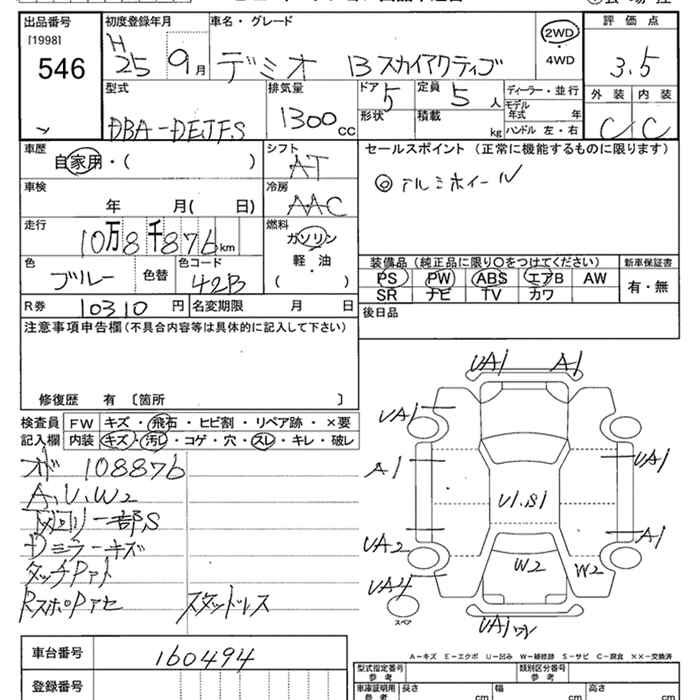 出品番号
[1998]
546
初度登録年月
H 25 9月
車名・グレード
デミオ 13スカイアクティブ
2WD
・
4WD
評価点
3.5
型式
DBA-DEJFS
排気量
1300cc
ドア
5
形状
定員
5人
積載
kg
ディーラー・並行
モデル年式 年式
ハンドル 左・右
外装 内装
C C
車歴
自家用・( )
シフト
AT
車検
年 月( 日)
冷房
AAC
走行
10万8千876km
燃料
ガソリン
軽・油
・
( )
色
ブルー
色替
色コード
42B
R券
10310円
名変期限 月 日
セールスポイント (正常に機能するものに限ります)
◎アルミホイール
装備品 (純正品に限り○をつけてください)
新車保証書
PS PW ABS エアB AW
SR ナビ TV カワ
有・無
後日品
注意事項申告欄(不具合内容等は具体的に記入して下さい)
修復歴 有〔箇所 〕
検査員
記入欄
FW キズ・飛石・ヒビ割・リペア跡・×要
内装 キズ・汚レ・コゲ・穴・スレ・キレ・破レ
108876
A、U、W2
下回り一部S
Dミラーキズ
タッチPアト
スタッドレス
UA1 A1
UA1
A1
UA1
U1.S1
UA2
A1
W2
W2
UA4
スペア
UA1
A-キズ E-エクボ U-凹み W-補修跡 S-サビ C-腐食 ××-交換済
車台番号
160494
登録番号
型式指定番号
参考
類別区分番号
参考
車庫証明用
参考
長さ cm
幅 cm
高さ cm